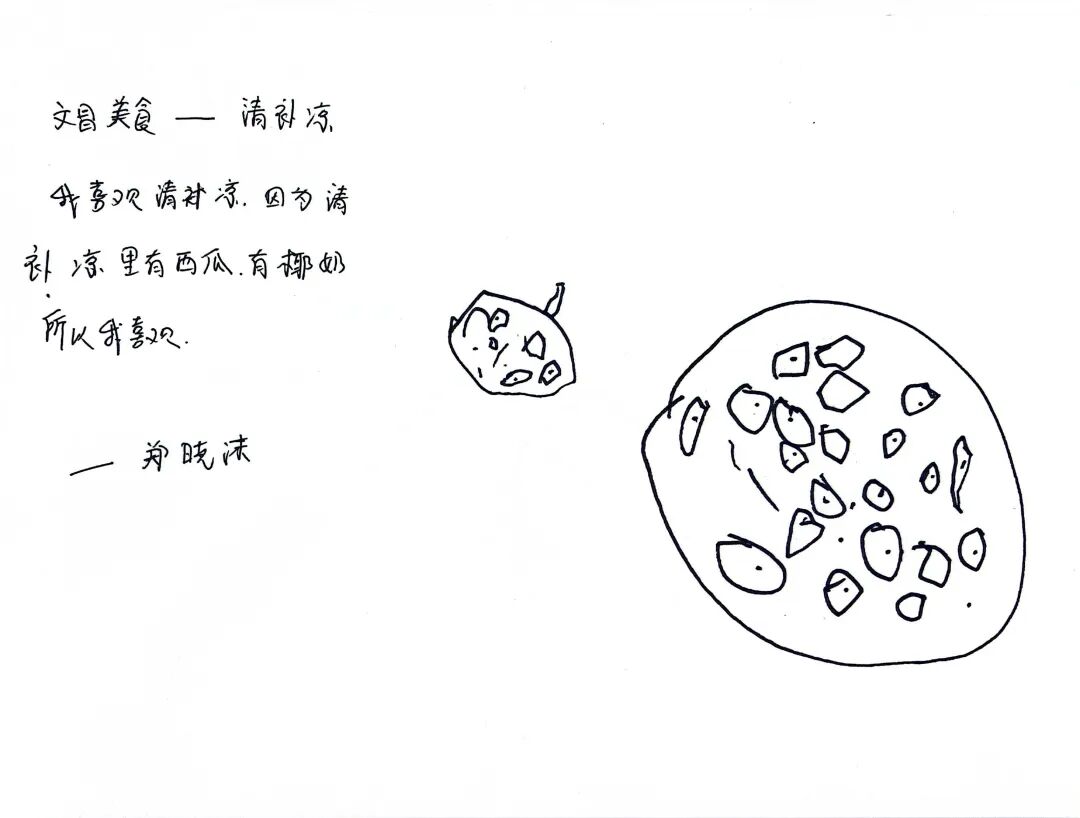 文昌美食 — 清补凉
我喜欢清补凉.因为清
补凉里有西瓜.有椰奶
所以我喜欢.
— 郑晓沫